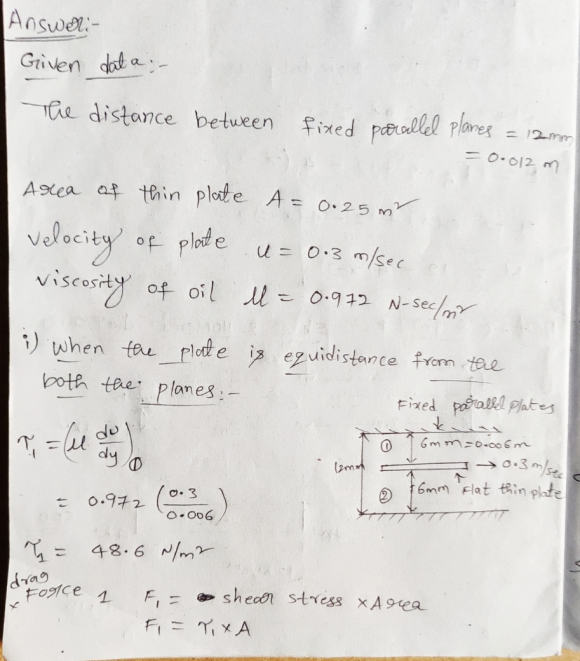 Answer:-
Given data:-
The distance between fixed parallel planes = 12mm
= 0.012 m
Area of thin plate A = 0.25 m²
velocity of plate u = 0.3 m/sec
viscosity of oil μ = 0.972 N-sec/m²
i) when the plate is equidistance from the
both the planes:-
Fixed parallel plates
τ₁ = (μ du/dy)①
① 6mm=0.006m
12mm
→ 0.3 m/sec
② 6mm Flat thin plate
= 0.972 (0.3/0.006)
τ₁ = 48.6 N/m²
drag
× Force 1 F₁ = shear stress × Area
F₁ = τ₁ × A